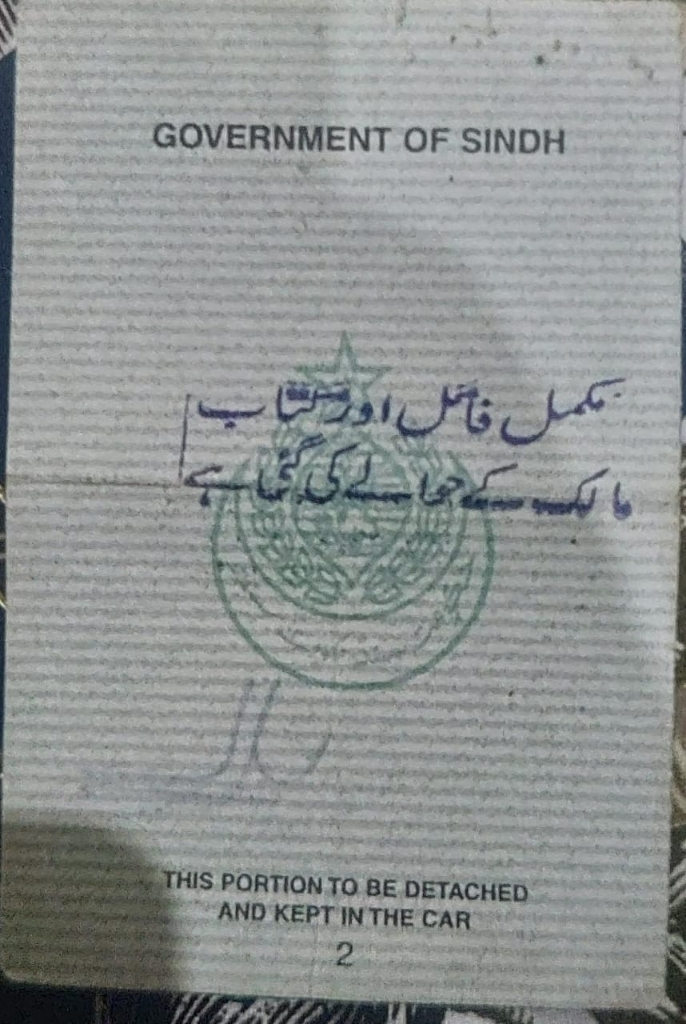 GOVERNMENT OF SINDH
مکمل فائل اور کتاب
مالک کے حوالے کی گئی ہے
THIS PORTION TO BE DETACHED
AND KEPT IN THE CAR
2